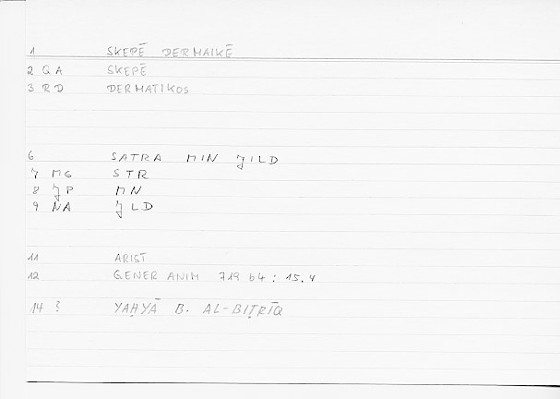 1 SKEPĒ DERMAIKĒ
2 QA SKEPĒ
3 RD DERMATIKOS
6 SATRA MIN JILD
7 MG STR
8 JP MN
9 NA JLD
11 ARIST
12 GENER ANIM 719 b4 : 15.4
14 ? YAḤYĀ B. AL-BIṬRĪQ